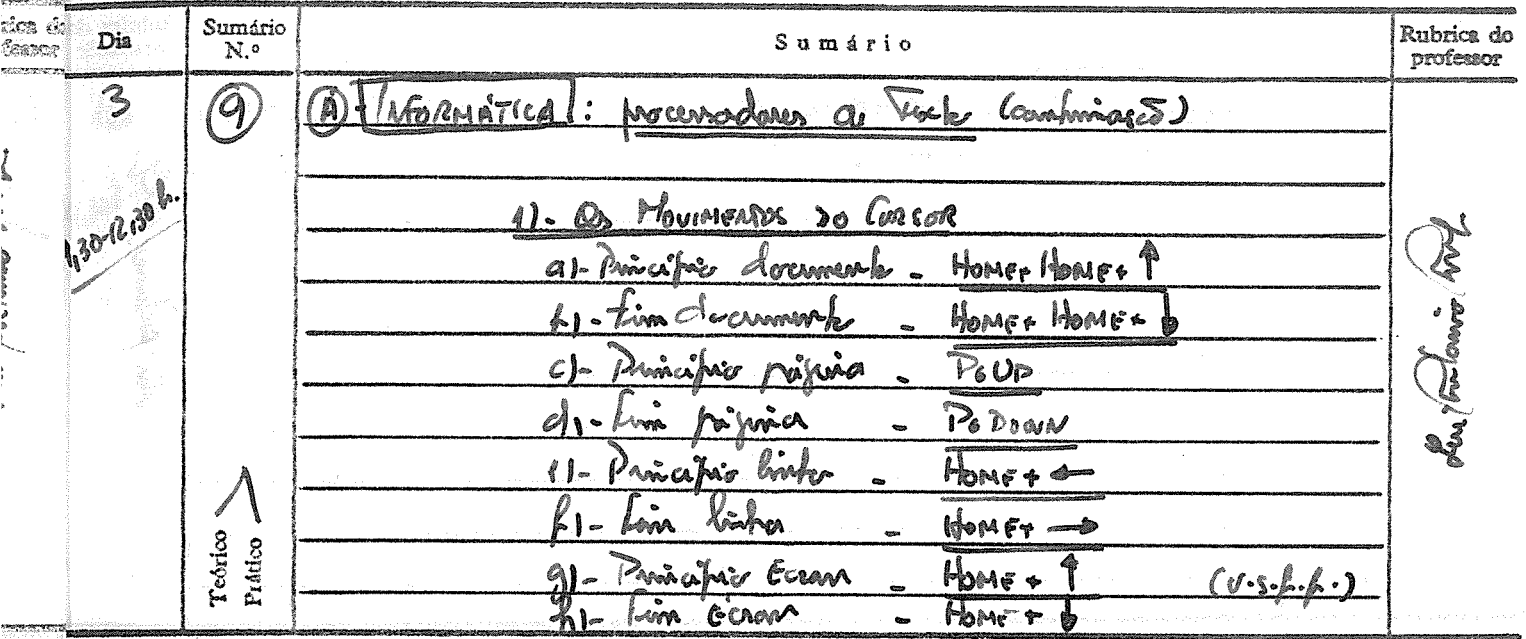 Dia Sumário N.º Sumário Rubrica do professor
3 9 A - INFORMÁTICA: processadores de Texto (continuação)
1,30-12,30 h.
1)- Os MOVIMENTOS DO CURSOR
a)- Princípio documento - HOME+HOME+↑
b)- Fim documento - HOME+HOME+↓
c)- Princípio página - PGUP
d)- Fim página - PGDOWN
e)- Princípio linha - HOME+←
f)- Fim linha - HOME+→
g)- Princípio Ecran - HOME+↑ (v.s.f.f.)
h)- Fim Ecran - HOME+↓
Teórico
Prático